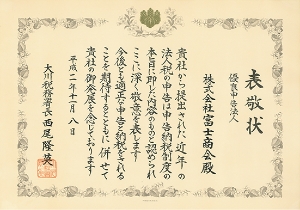 表敬状
優良申告法人
株式会社富士商会殿
貴社から提出された近年の
法人税の申告は申告納税制度の
本旨に即した内容のものと認められ
ここに深く敬意を表します
今後とも適正な申告と納税をされる
ことを期待するとともに併せて
貴社の御発展を念じております
平成二年十一月八日
大川税務署長西尾隆英